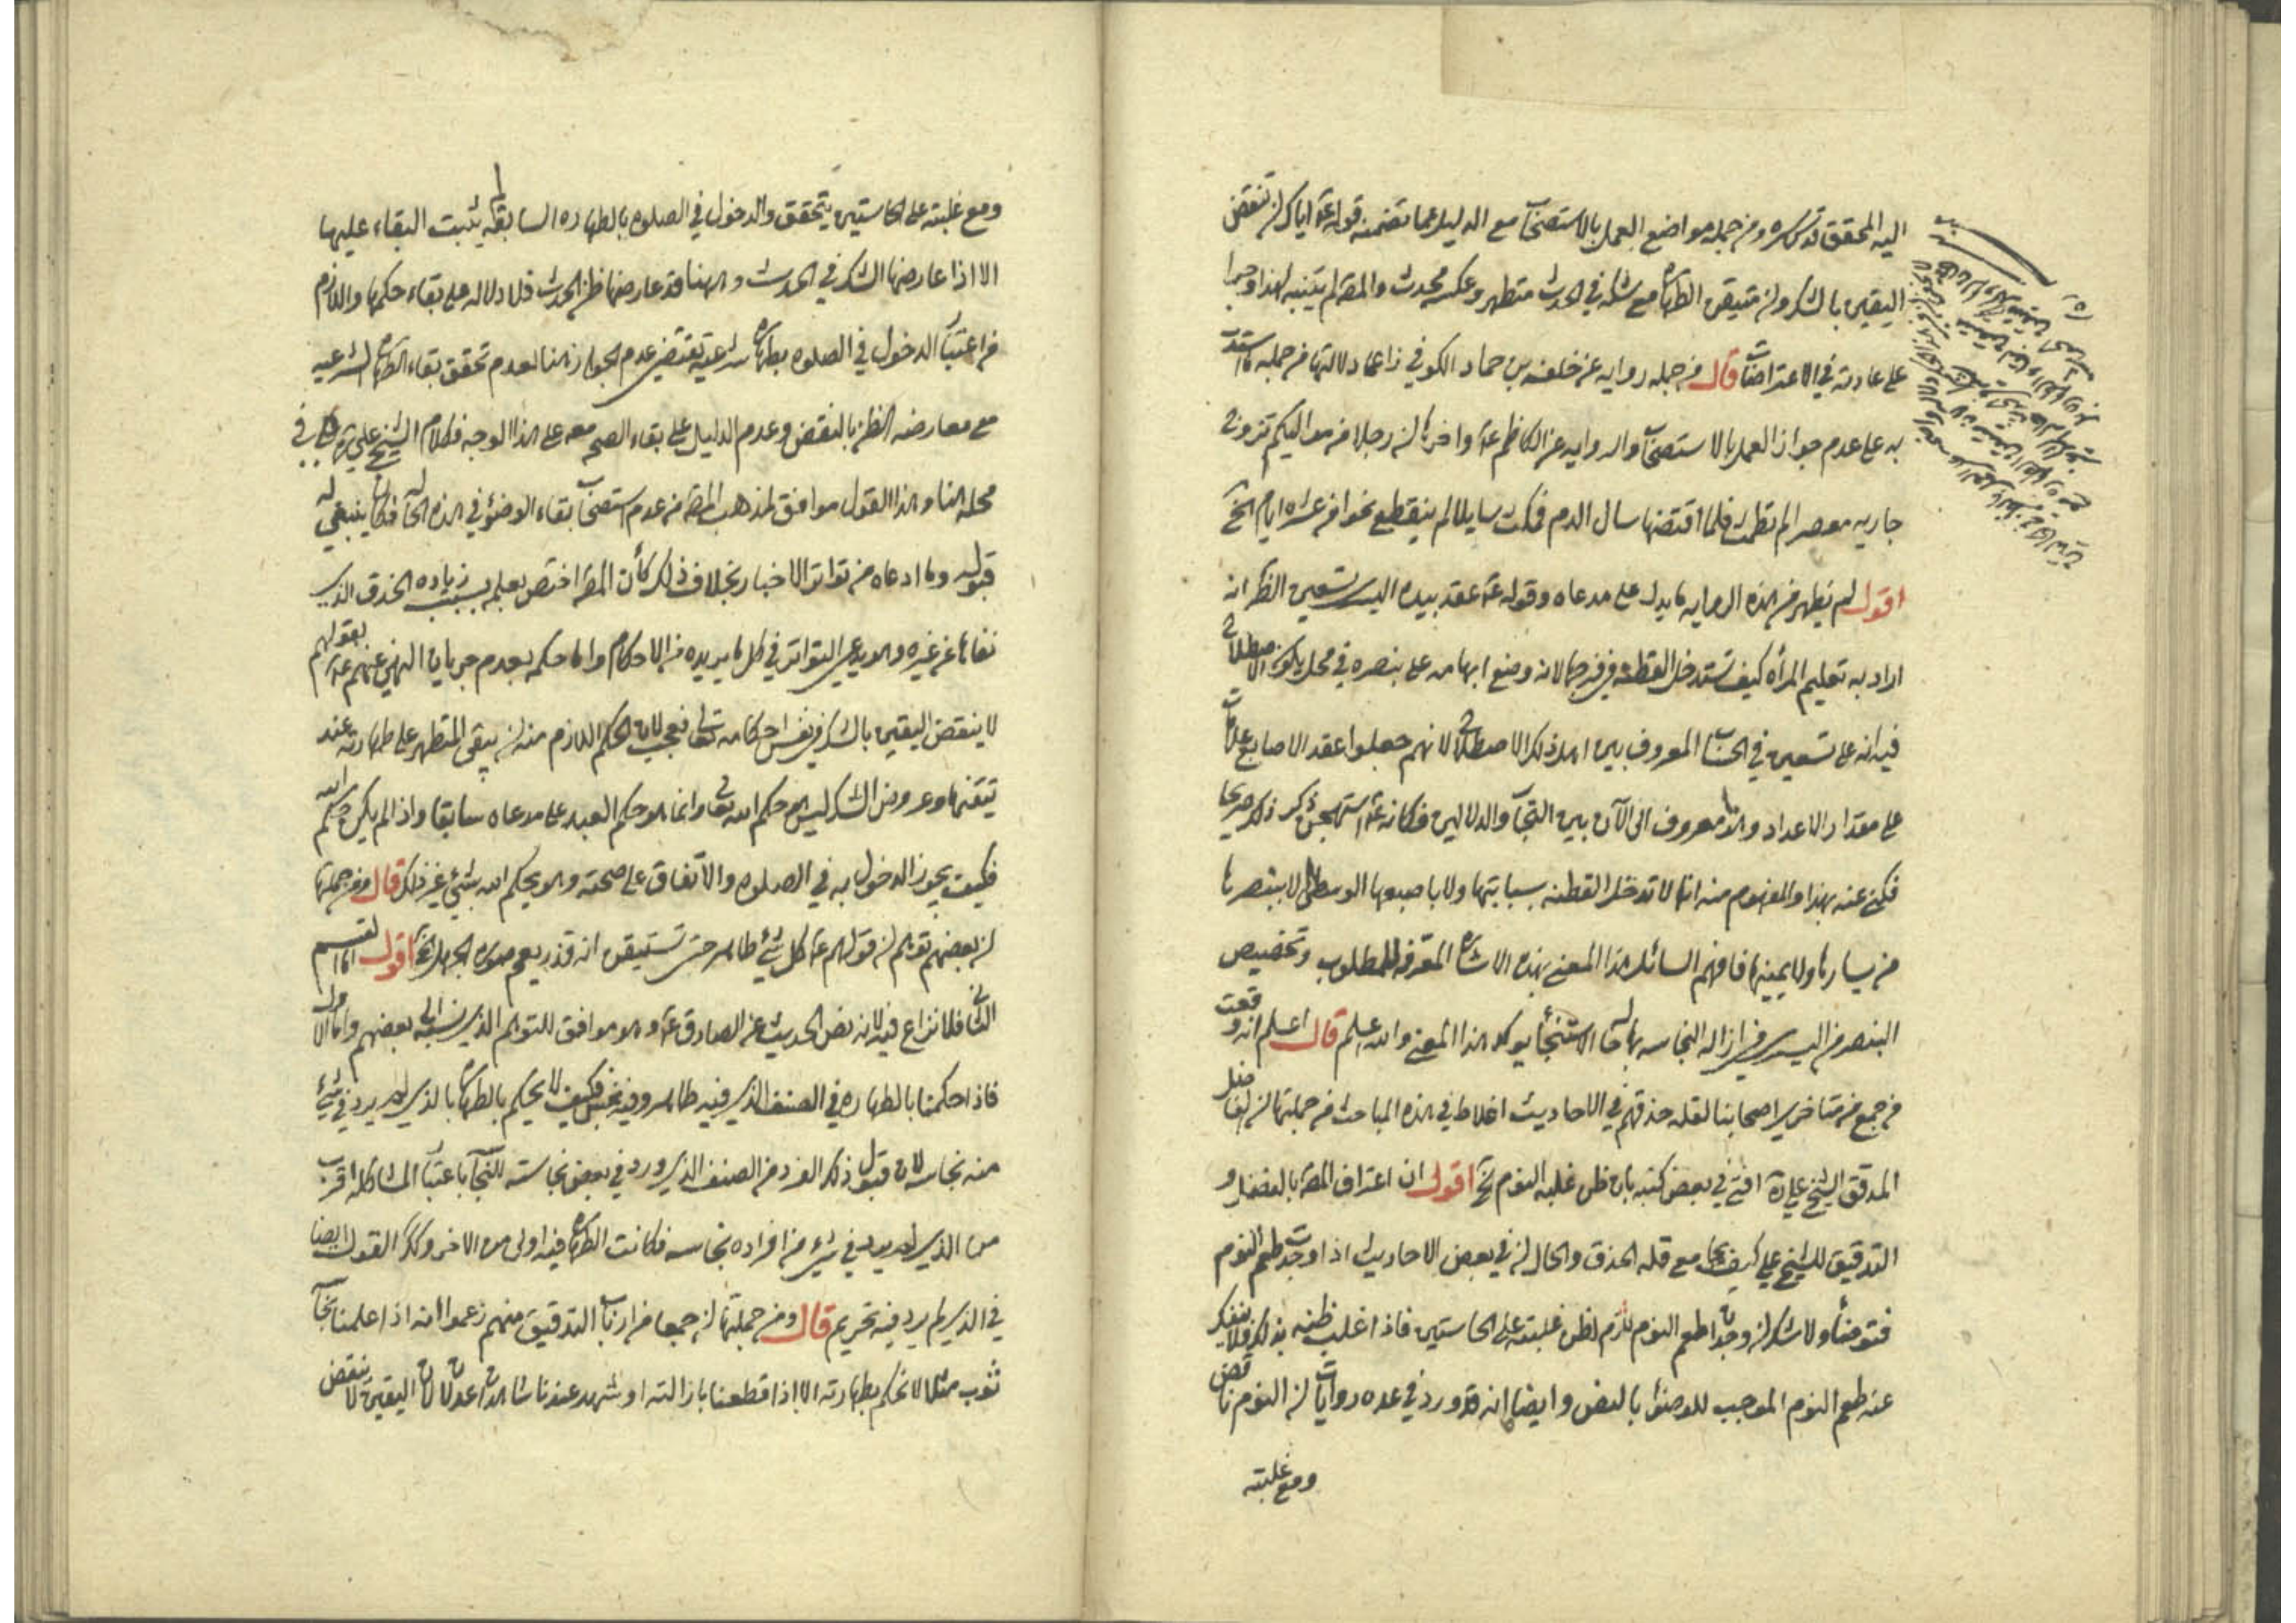 اليه المحقق قدس سره ومن جمله مواضع العمل بالاستصحاب مع الدليل عما تضمنه قوله عم اياك ان تنقض
اليقين بالشك وان متيقن الطهاره مع شكه في الحدث متطهر وعكسه محدث والمص لم يتنبه لهذا وجرا
على عادته في الاعتراضات قال من جمله روايه عن خلف بن حماد الكوفي زاعما دلالتها من جمله ما استدل
به على عدم جواز العمل بالاستصحاب والروايه عن الكاظم عم واخرها ان رجلا من مواليكم تزوج
جاريه معصرا لم تطمث فلما اقتضها سال الدم فمكث سايلا لم ينقطع نحوا من عشره ايام الخ
اقول لم يظهر من هذه الروايه ما يدل على مدعاه وقوله عم عقد بيده اليسرى تسعين الظ انه
اراد به تعليم المرأه كيف تستدخل القطنه في فرجها لانه وضع ابهامه على بنصره في محل يكون الاصطلاح
فيه انه على تسعين في الحساب المعروف بين اهل ذلك الاصطلاح لانهم جعلوا عقد الاصابع علامات
على مقدار الاعداد وهو معروف الى الآن بين التجار والدلالين فكانه عم استهجن ذكر ذلك صريحا
فكنى عنه بهذا والمفهوم منه انها لا تدخل القطنه بسبابتها ولا باصبعها الوسطى لا ببنصرها
من يسارها ولا يمينها فافهم السائل هذا المعنى بهذه الاشاره المعرفه للمطلوب وتخصيص
البنصر من اليسرى في ازاله النجاسه بها حاله الاستنجاء يوكد هذا المعنى والله اعلم قال اعلم انه وقعت
من جمع من متاخري اصحابنا لقله حذقهم في الاحاديث اغلاط في هذه المباحث من جملتها ان الفاضل
المدقق الشيخ علي ره افتى في بعض كتبه بان ظن غلبه النوم الخ اقول ان اعتراف المص بالفضل و
التدقيق للشيخ علي كيف يجامع قله الحذق والحال ان في بعض الاحاديث اذا وجدت طعم النوم
فتوضأ ولا شك ان وجدان طعم النوم يلزم لظن غلبته على الحاستين فاذا غلب ظنه بذلك فلا ينفك
عنه طعم النوم الموجب للوضوء بالنص وايضا انه قد ورد في عده روايات ان النوم ناقض
ومع غلبته
ومع غلبته على الحاستين يتحقق والدخول في الصلوه بالطهاره السابقه لم يثبت البقاء عليها
الا اذا عارضها الشك في الحدث وههنا قد عارضها ظن الحدث فلا دلاله على بقاء حكمها واللازم
من اعتبار الدخول في الصلوه بطهاره شرعيه يقتضي عدم الجواز هنا لعدم تحقق بقاء الطهاره الشرعيه
مع معارضه الظن بالنقض وعدم الدليل على بقاء الصحه معه على هذا الوجه فكلام الشيخ علي ره في
محله هنا وهذا القول موافق لمذهب المص من عدم استصحاب بقاء الوضوء في هذه الحاله فكان ينبغي له
قبوله وما ادعاه من تواتر الاخبار بخلاف ذلك كأن المص اختص بعلمه بسبب زياده الحذق الذي
نفاها عن غيره وهو يدعي التواتر في كل ما يريده من الاحكام واما حكمه بعدم جريان النهي عنهم عم بقولهم
لا ينقض اليقين بالشك في نفس احكامه تعالى فعجب لان الحكم اللازم منه ان يبقى المتطهر على طهارته عند
تيقنها وعروض الشك ليس هو حكم الله تعالى وانما هو حكم العبد على مدعاه سابقا واذا لم يكن حكم الله
فكيف يجوز الدخول به في الصلوه والاتفاق على صحته ولم يحكم الله بشيء غير ذلك قال ومن جملتها
ان بعضهم توهم ان قولهم عم كل شئ طاهر حتى تستيقن انه قذر يعم صوره الجهل الخ اقول اما القسم
الثاني فلا نزاع فيه لانه نص الحديث عن الصادق عم وهو موافق للتوهم الذي نسبه الى بعضهم واما الاول
فاذا حكمنا بالطهاره في الصنف الذي فيه طاهر وفيه نجس فكيف لا يحكم بالطهاره بالذي لم يرد في شئ
منه نجاسه لان قبول ذلك الفرد من الصنف الذي ورد في بعض نجاسته للنجاسه باعتبار المشاكله اقرب
من الذي لم يرد في شئ من افراده نجاسه فكانت الطهاره فيه اولى من الاخر وكذلك القول ايضا
في الذي لم يرد فيه تحريم قال ومن جملتها ان جمعا من ارباب التدقيق منهم زعموا انه اذا علمنا نجاسه
ثوب مثلا لا نحكم بطهارته الا اذا قطعنا بازالته او شهد عندنا شاهدان عدلان لان اليقين لا ينقض